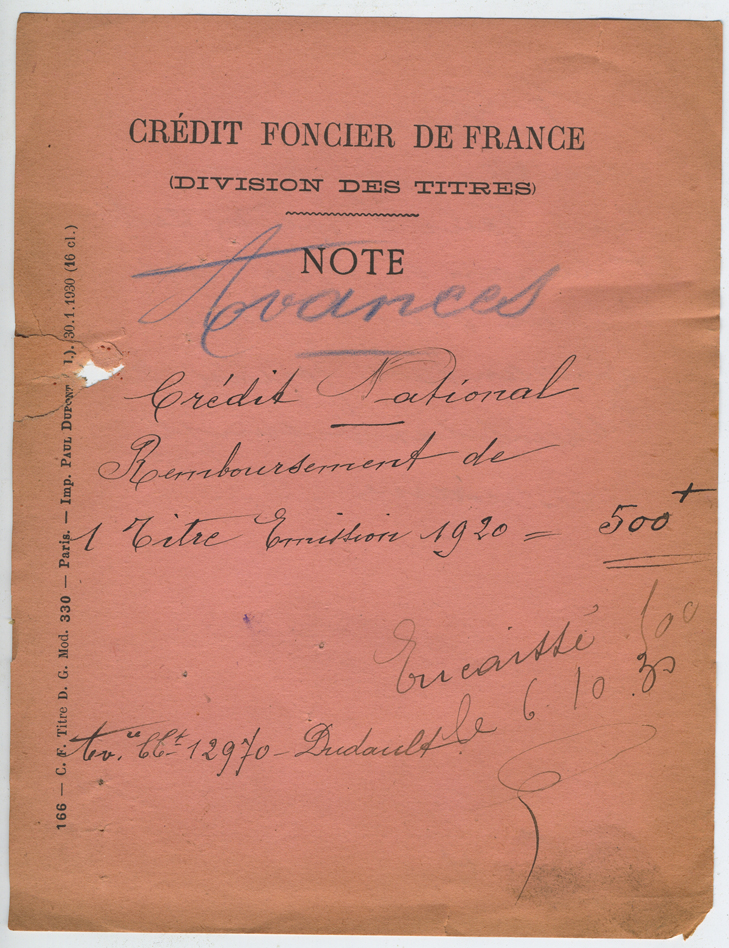 CRÉDIT FONCIER DE FRANCE
(DIVISION DES TITRES)
NOTE
Avances
Crédit National
Remboursement de
1 Titre Emission 1920 = 500
Encaissé 500
le 6.10.30
Av. ce Ct 12970 - Dudault
166 — C. F. Titre D. G. Mod. 330 — Paris. — Imp. PAUL DUPONT 30.1.1930 (16 cl.)